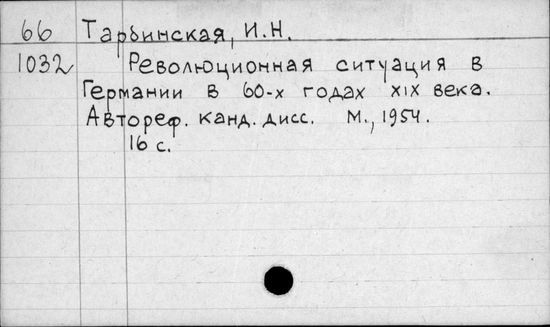 66 Тарбинская, И.Н.
1032 Революционная ситуация в
Германии в 60-х годах XIX века.
Автореф. канд. дисс. М., 1954.
16 с.